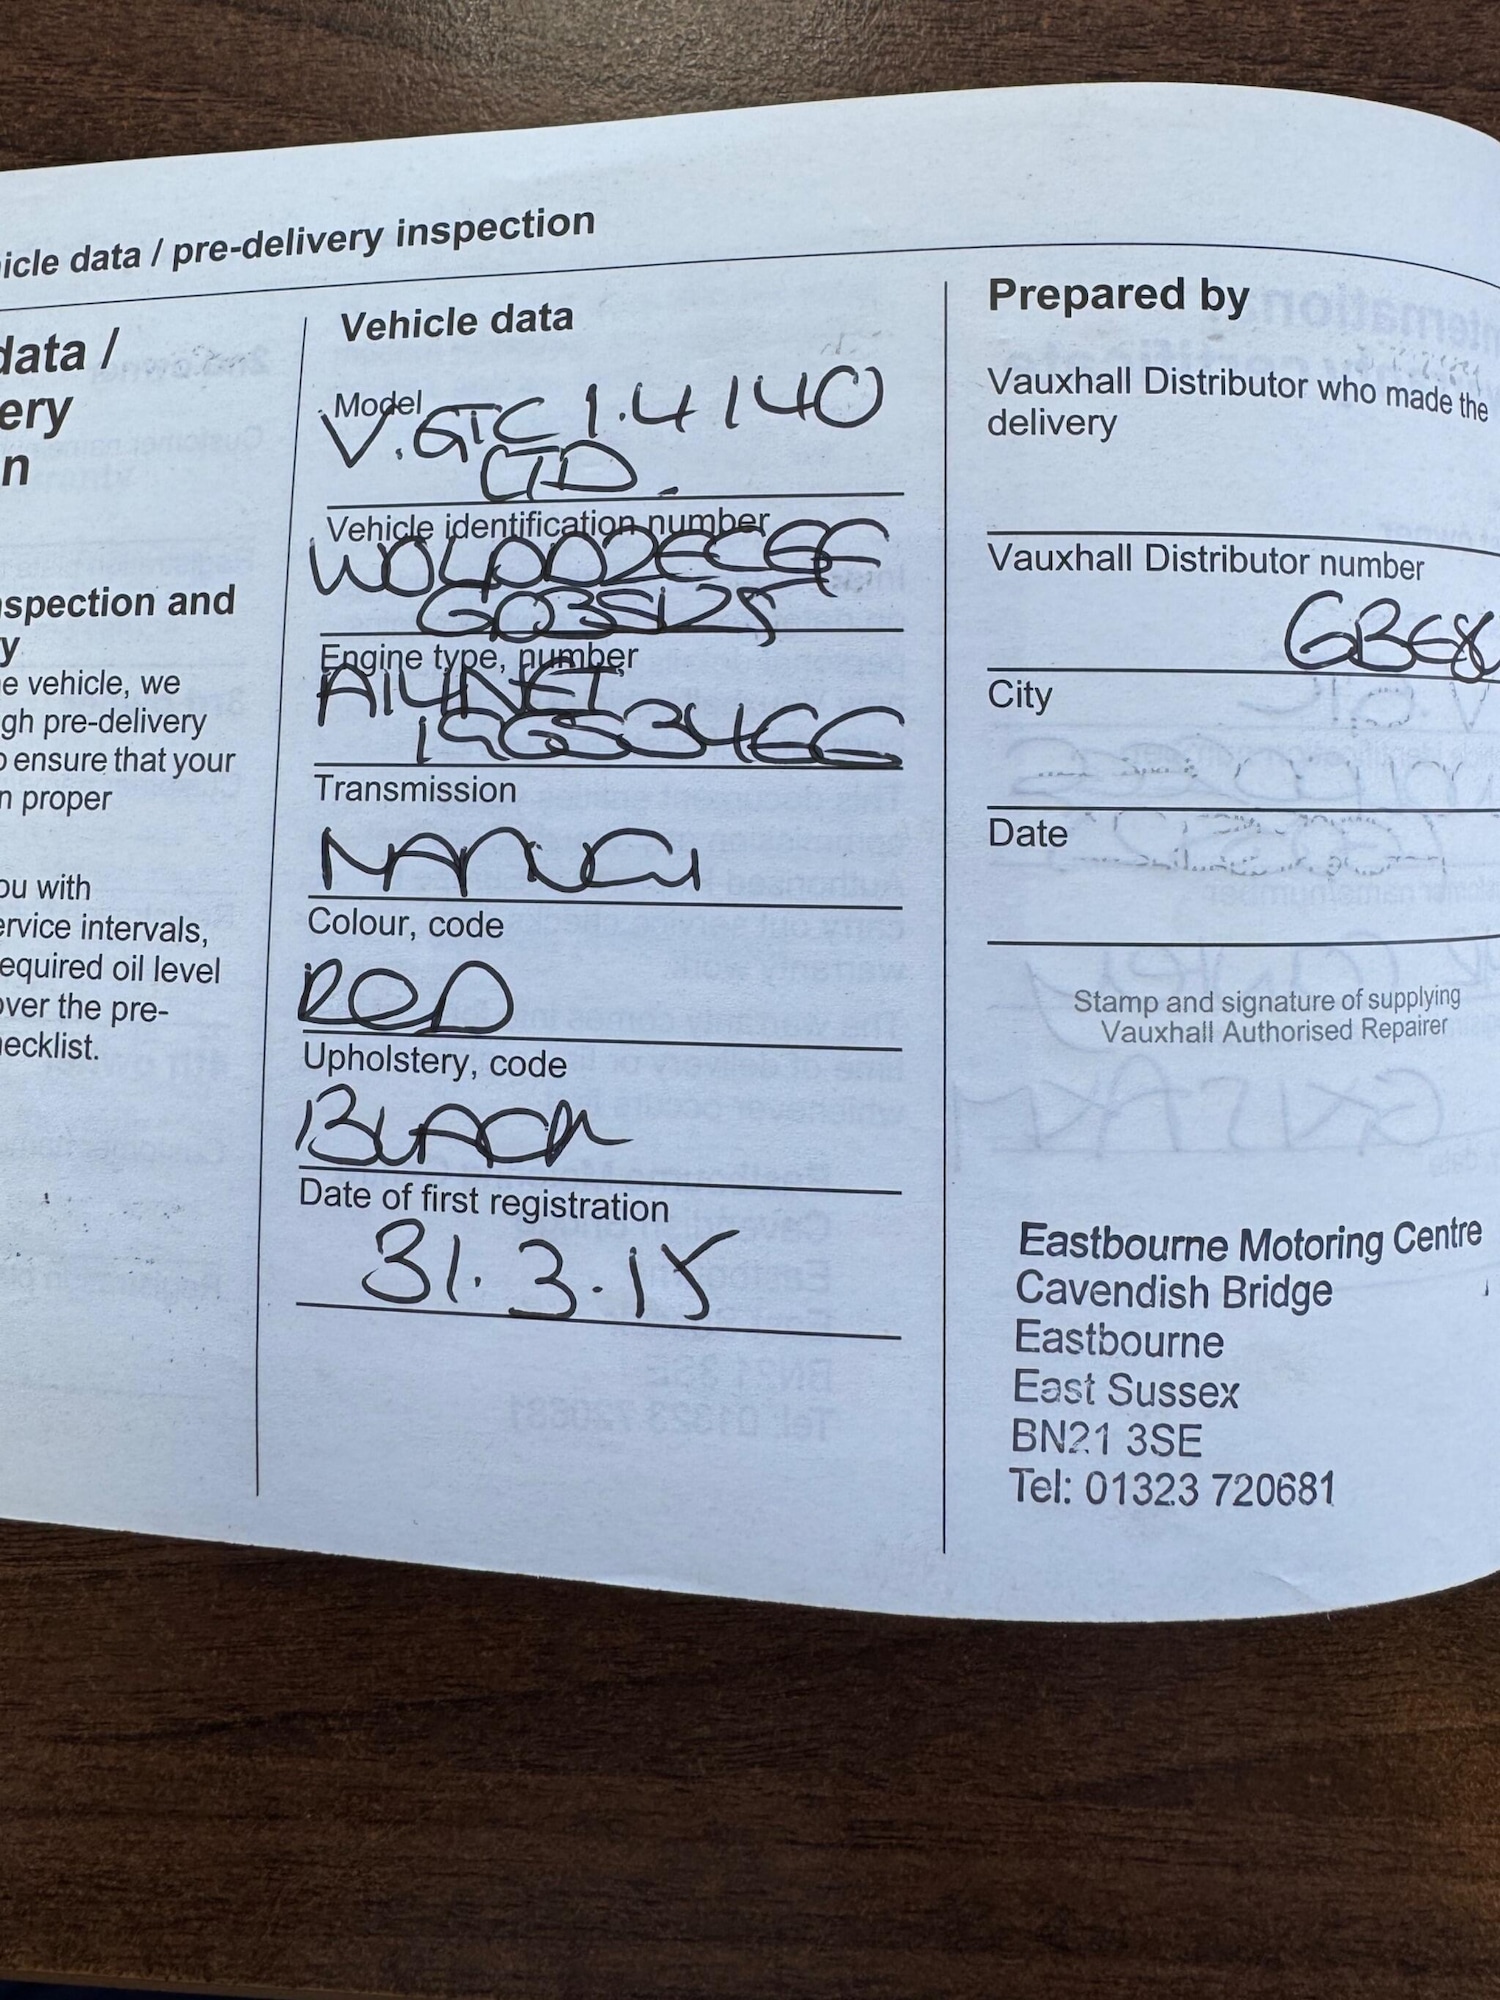 icle data / pre-delivery inspection
data /
ery
n
spection and
y
e vehicle, we
gh pre-delivery
o ensure that your
n proper
ou with
ervice intervals,
equired oil level
over the pre-
ecklist.
Vehicle data
Model
V.GTC 1.4 140
LTD.
Vehicle identification number
Engine type, number
Transmission
Colour, code
RED
Upholstery, code
BLACK
Date of first registration
31.3.15
Prepared by
Vauxhall Distributor who made the
delivery
Vauxhall Distributor number
City
Date
Stamp and signature of supplying
Vauxhall Authorised Repairer
Eastbourne Motoring Centre
Cavendish Bridge
Eastbourne
East Sussex
BN21 3SE
Tel: 01323 720681